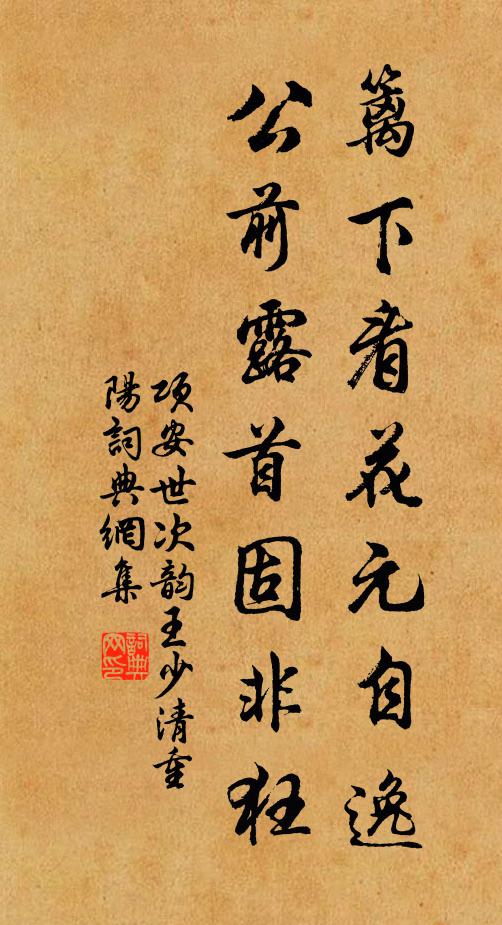 籬下看花元自逸
公前露首固非狂
項安世次韵王少清重
陽詞典網集
詞典網印